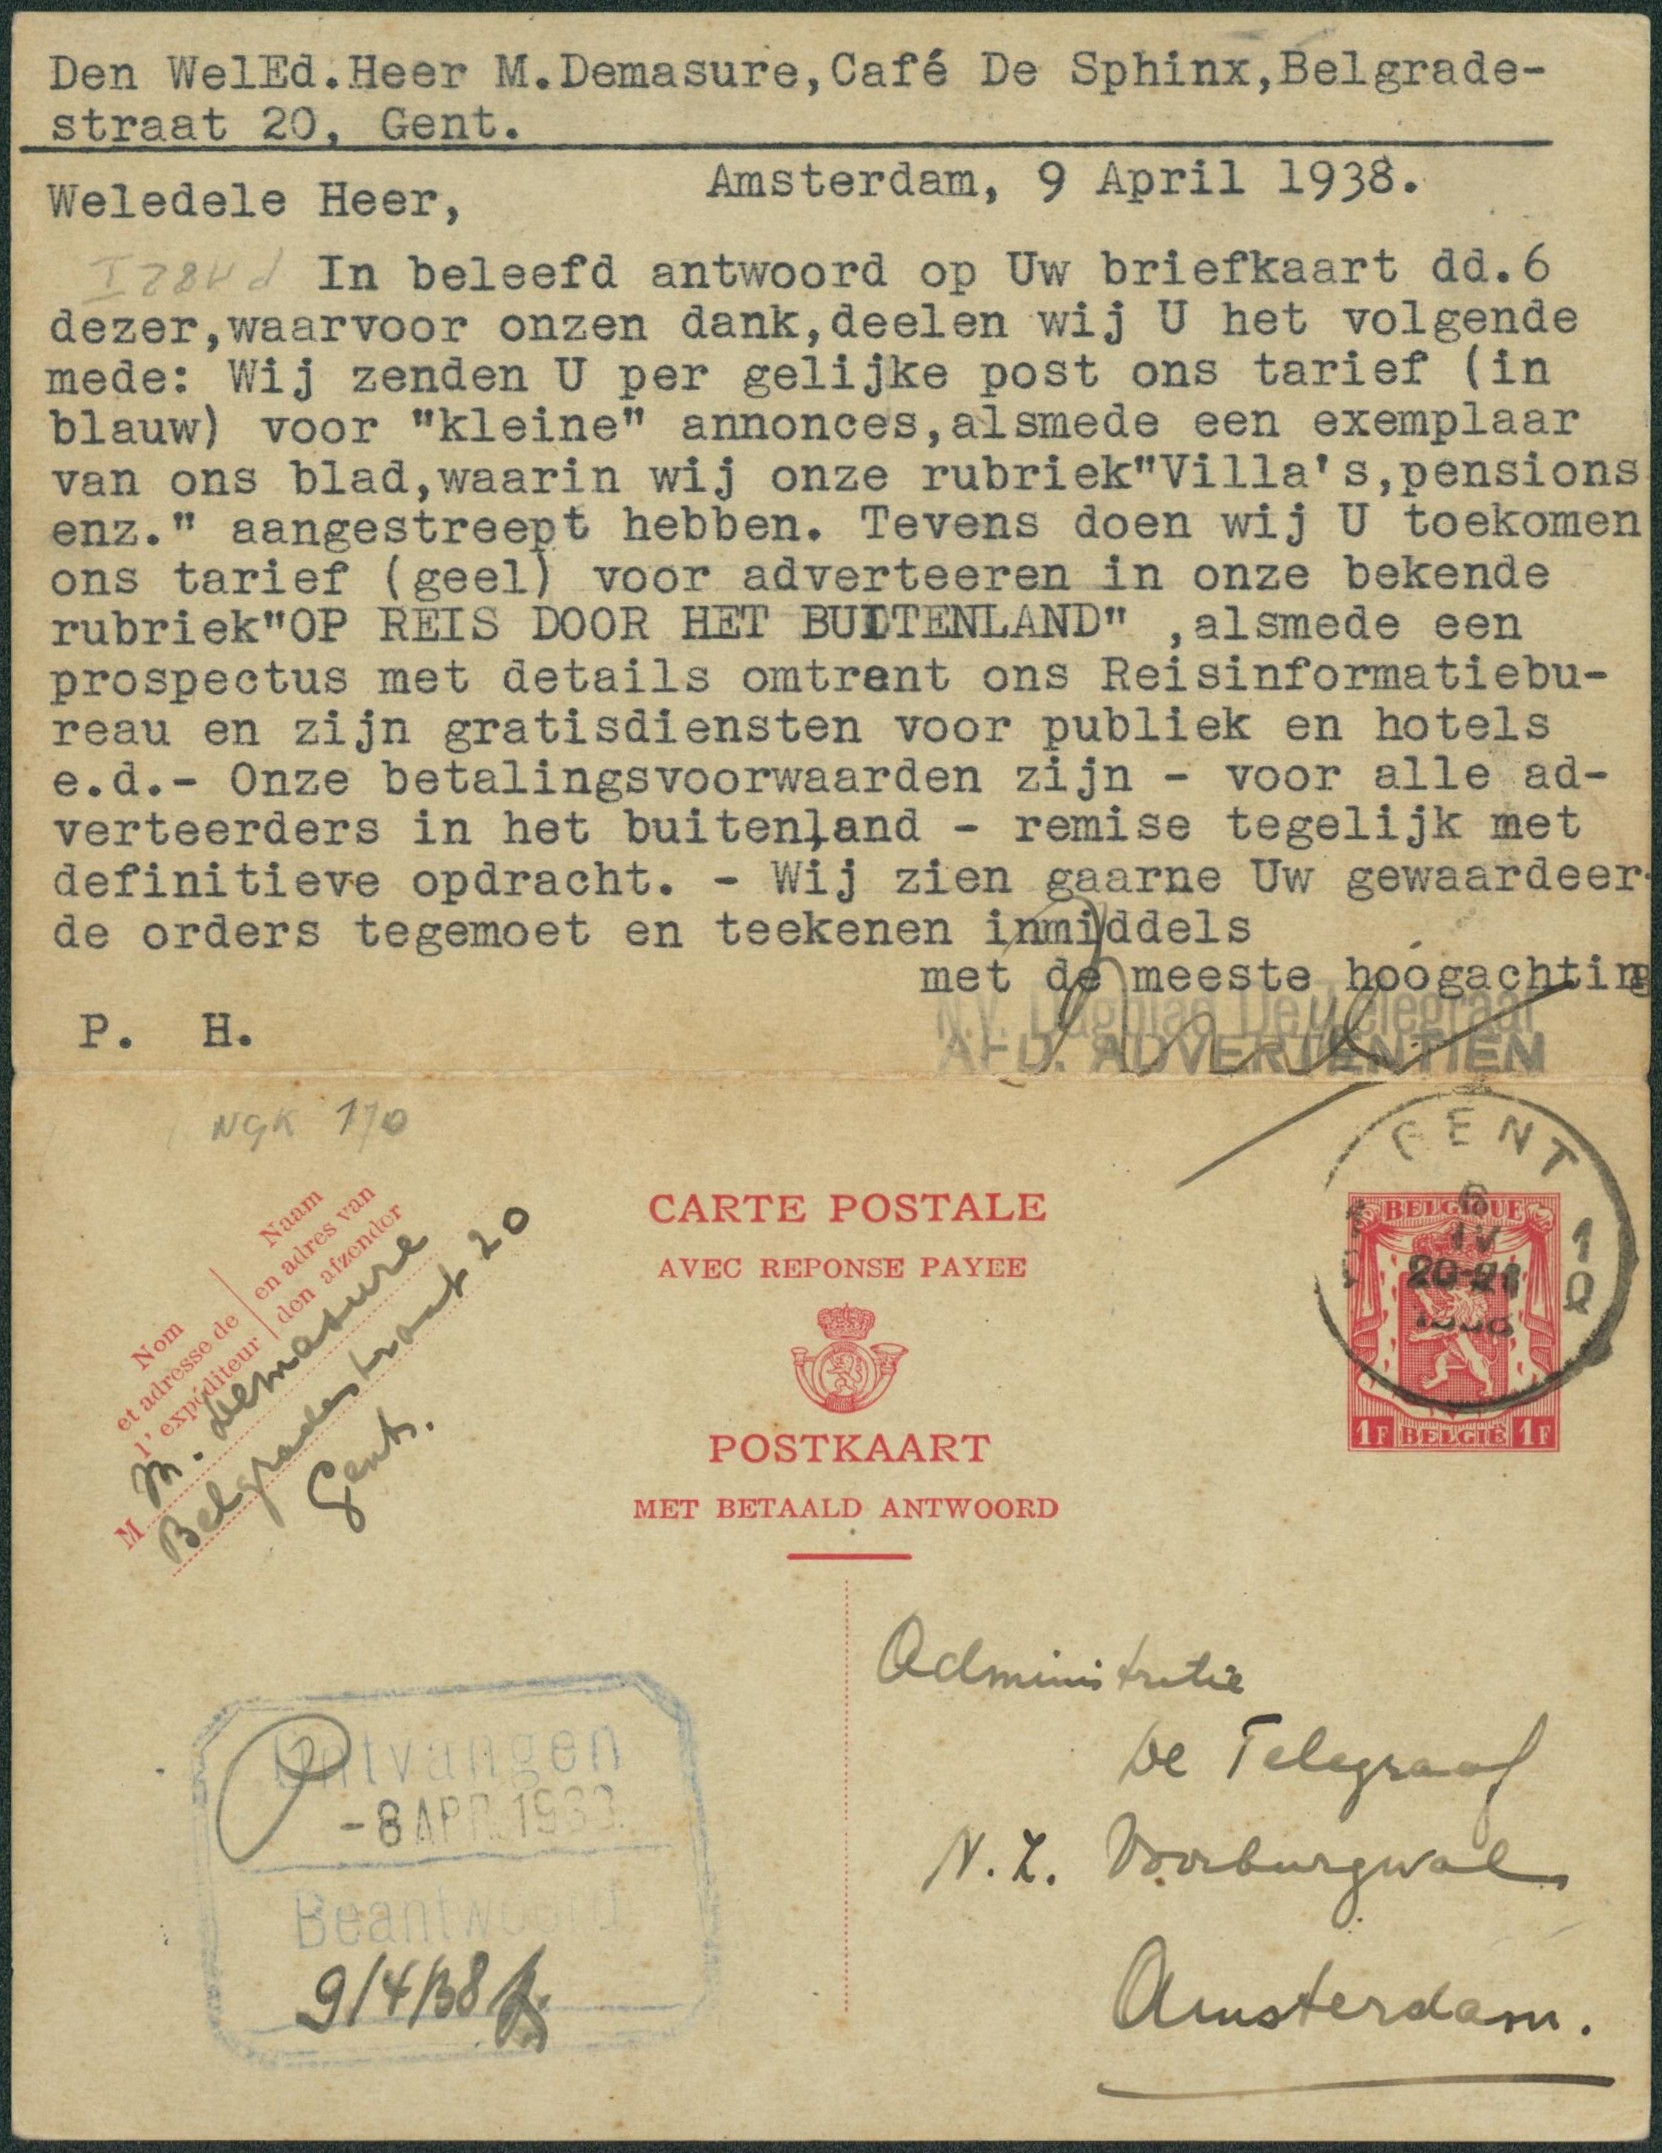 Den WelEd.Heer M.Demasure,Café De Sphinx,Belgrade-
straat 20, Gent.
Amsterdam, 9 April 1938.
Weledele Heer,
In beleefd antwoord op Uw briefkaart dd.6
dezer,waarvoor onzen dank,deelen wij U het volgende
mede: Wij zenden U per gelijke post ons tarief (in
blauw) voor "kleine" annonces,alsmede een exemplaar
van ons blad,waarin wij onze rubriek"Villa's,pensions
enz." aangestreept hebben. Tevens doen wij U toekomen
ons tarief (geel) voor adverteeren in onze bekende
rubriek"OP REIS DOOR HET BUITENLAND" ,alsmede een
prospectus met details omtrent ons Reisinformatiebu-
reau en zijn gratisdiensten voor publiek en hotels
e.d.- Onze betalingsvoorwaarden zijn - voor alle ad-
verteerders in het buitenland - remise tegelijk met
definitieve opdracht. - Wij zien gaarne Uw gewaardeer-
de orders tegemoet en teekenen inmiddels
met de meeste hoogachting
N.V. Dagblad De Telegraaf
AFD. ADVERTENTIEN
P. H.
NGK 170
Nom
et adresse de
l'expéditeur
Naam
en adres van
den afzender
M
M. Demasure
Belgradestraat 20
Gent.
CARTE POSTALE
AVEC REPONSE PAYEE
POSTKAART
MET BETAALD ANTWOORD
GENT
1
6
IV
20-21
1938
BELGIQUE
1F BELGIË 1F
Administratie
De Telegraaf
N.Z. Voorburgwal
Amsterdam.
Ontvangen
-8 APR. 1938
Beantwoord
9/4/38